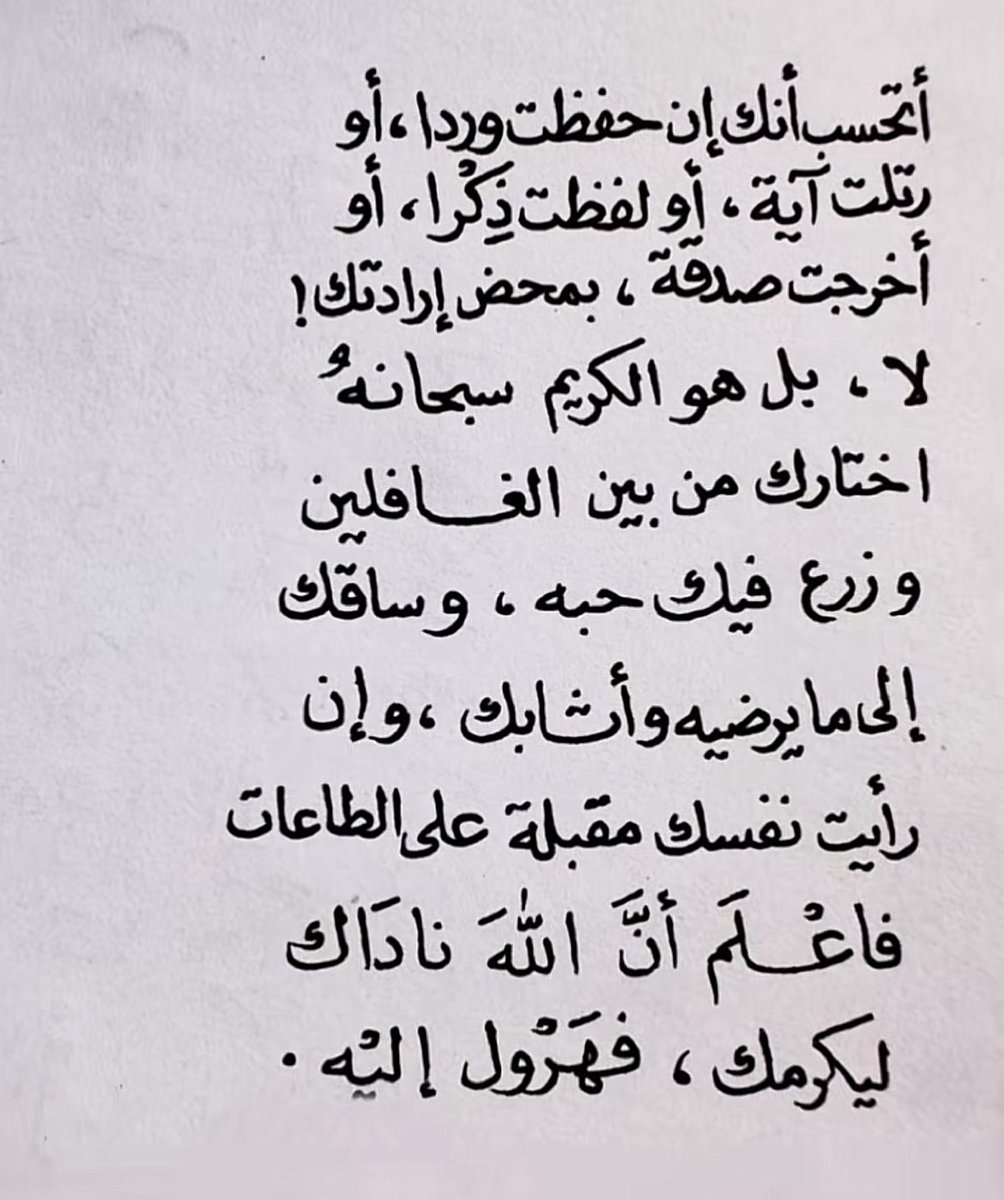 أتحسب أنك إن حفظت وردا ، أو
رتلت آية ، أو لفظت ذِكْرا ، أو
أخرجت صدقة ، بمحض إرادتك !
لا ، بل هو الكريم سبحانهُ
اختارك من بين الغـافلين
وزرع فيك حبه ، وساقك
إلى ما يرضيه وأثابك ، وإن
رأيت نفسك مقبلة على الطاعات
فاعْـلَم أنَّ اللّهَ نادَاك
ليكرمك ، فهَرْول إليْه .